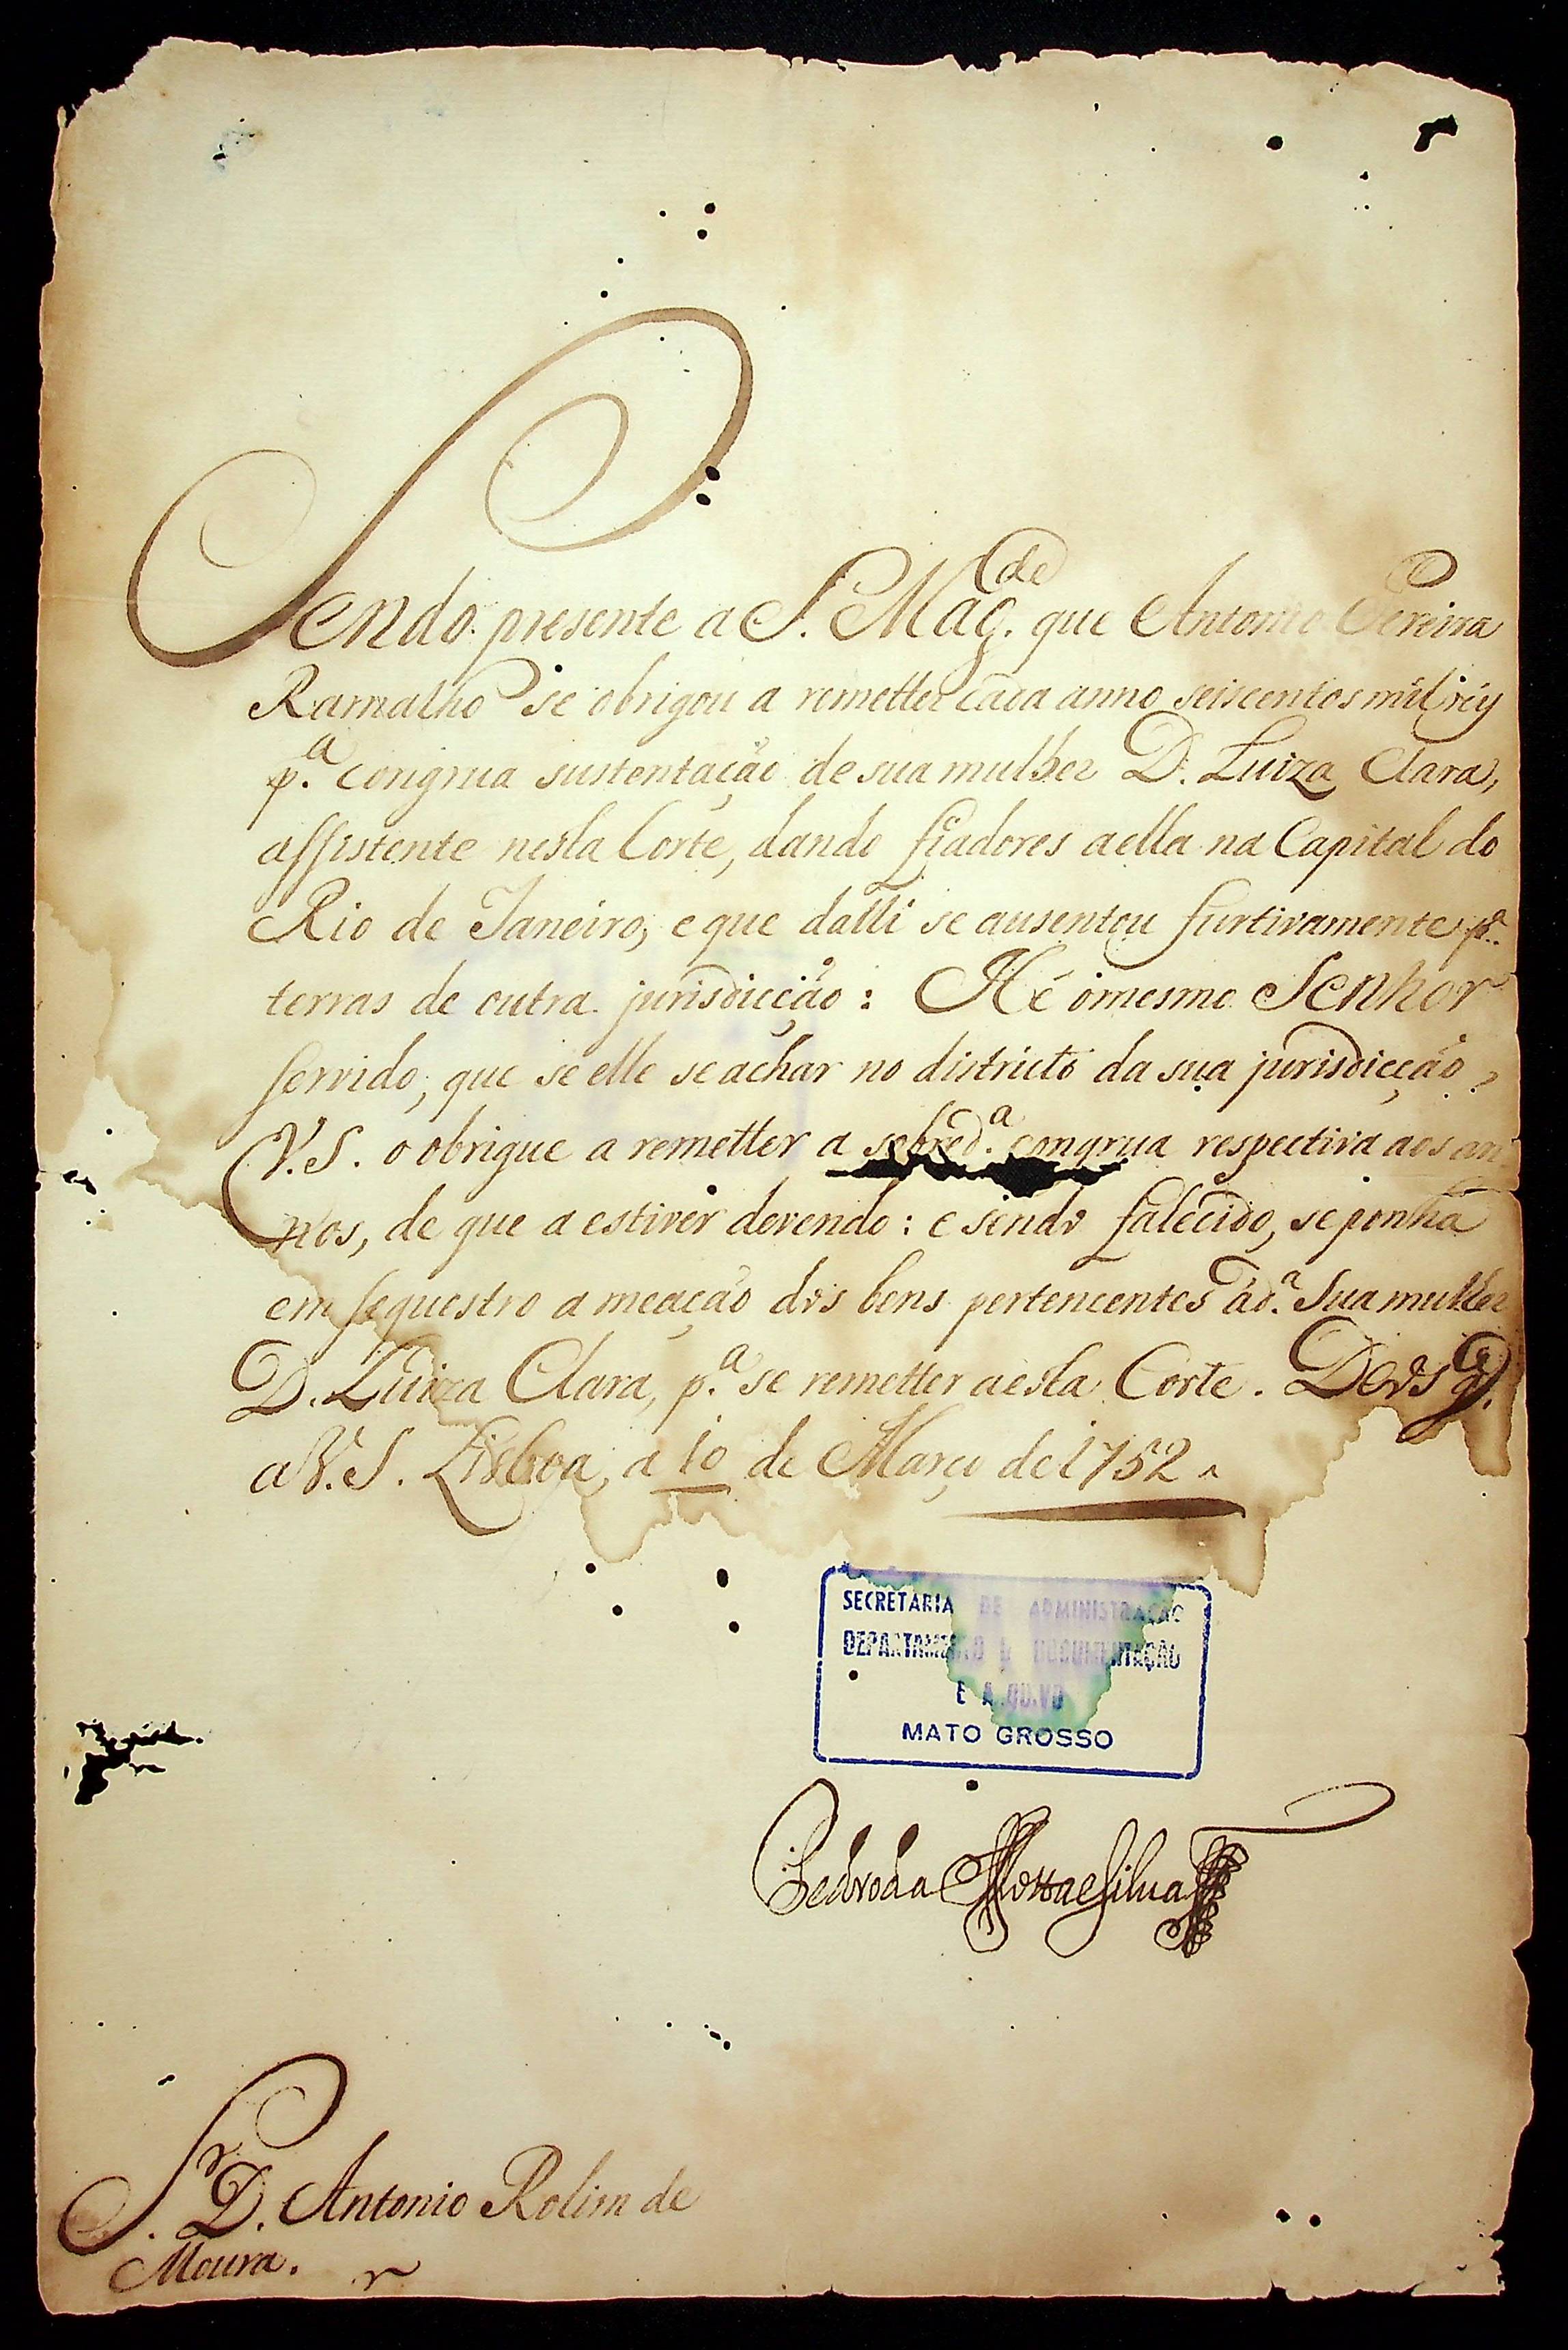 Sendo presente a S. Mag.de que Antonio Pereira
Ramalho se obrigou a remetter cada anno seiscentos mil reis
p.a congrua sustentação de sua mulher D. Luiza Clara,
assistente nesta Corte, dando fiadores a ella na Capital do
Rio de Janeiro, e que dalli se ausentou furtivamente p.a
terras de outra jurisdicção: Hé o mesmo Senhor
servido, que se elle se achar no districto da sua jurisdicção,
V.S. o obrigue a remetter a sobred.a congrua respectiva aos an
nos, de que a estiver devendo: e sendo falecido, se ponha
em sequestro a meação dos bens pertencentes ád.a Sua mulher
D. Luiza Clara, p.a se remetter a esta Corte. Deos g.e
a V.S. Lisboa, a 10 de Março de 1752
SECRETARIA DE ADMINISTRAÇÃO
DEPARTAMENTO DE DOCUMENTAÇÃO
E ARQUIVO
MATO GROSSO
Pedro da Motta e Silva
S.r D. Antonio Rolim de
Moura.